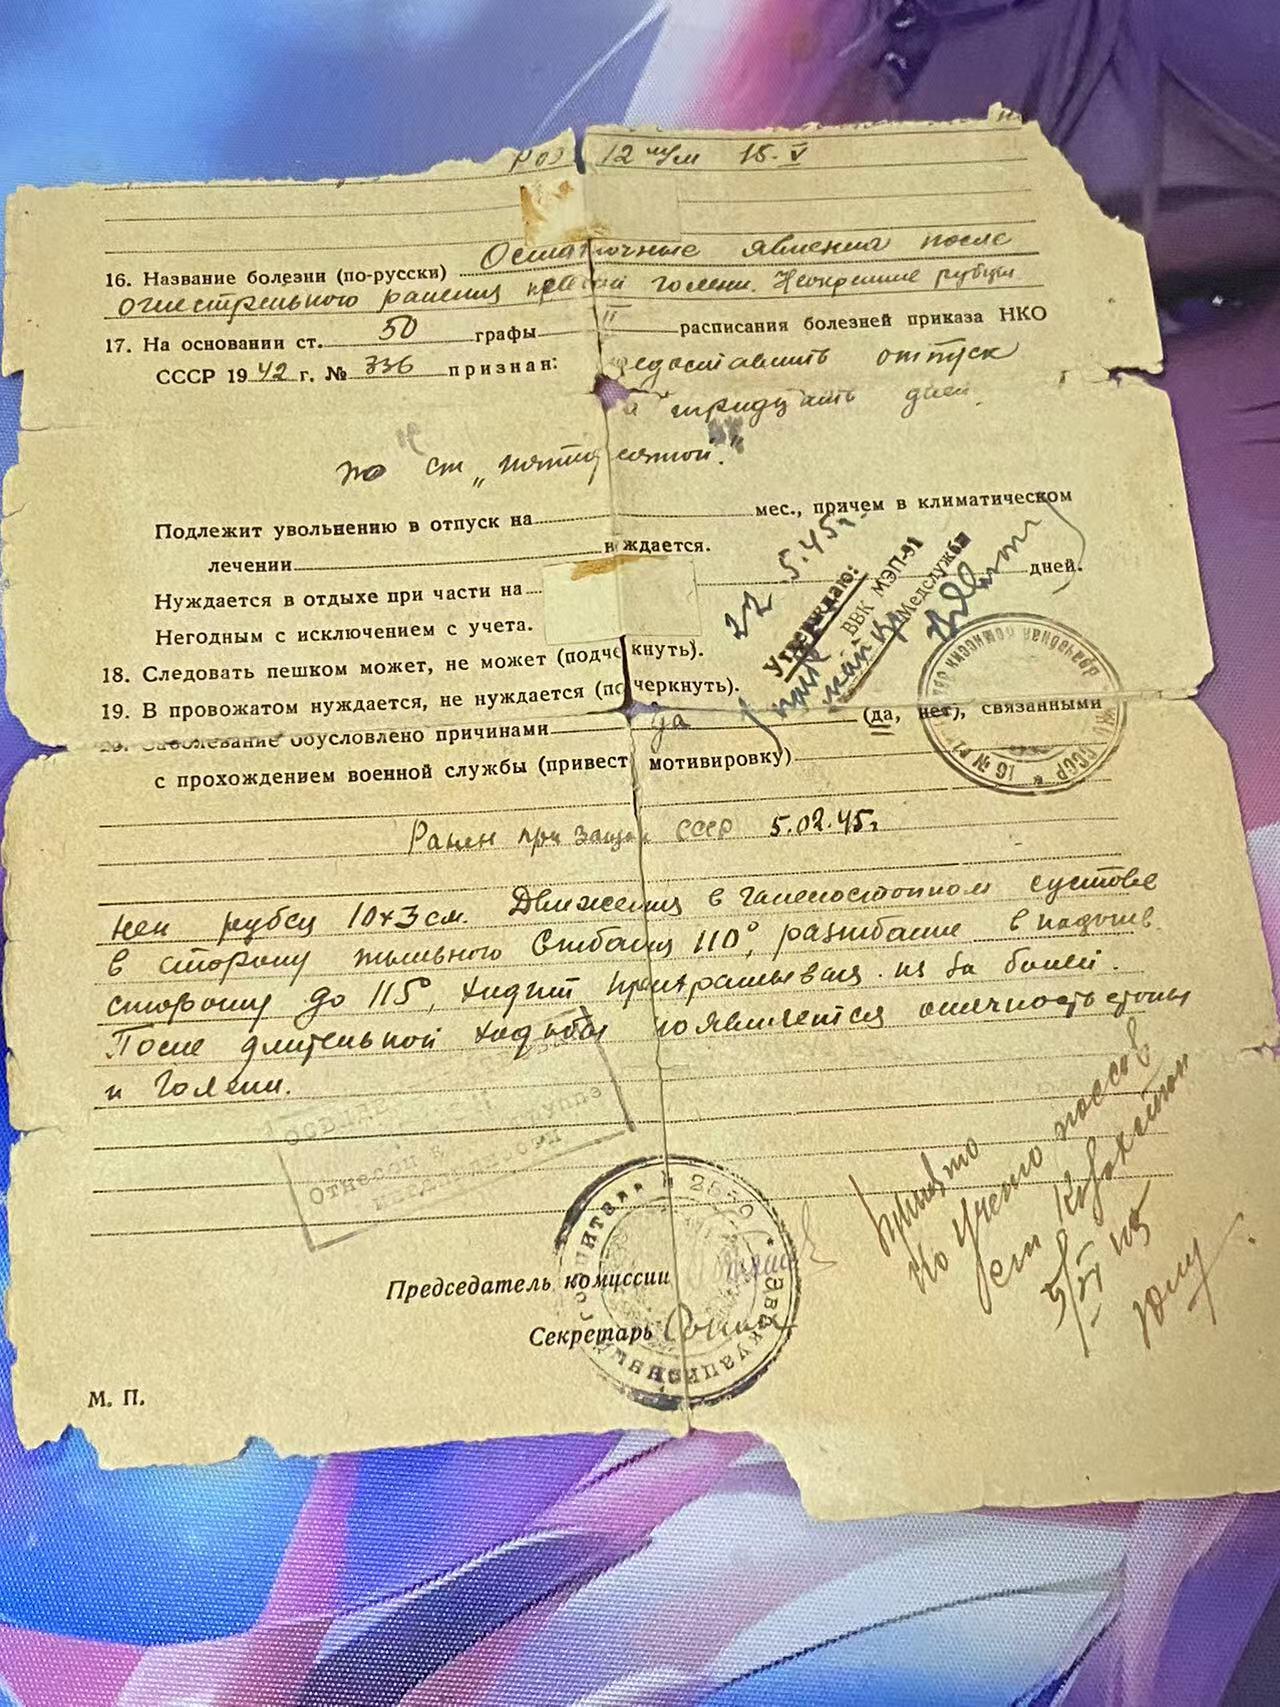 12 м/м 15.V
16. Название болезни (по-русски) Остаточные явления после
огнестрельного ранения голени. Неокрепшие рубцы
17. На основании ст. 50 графы II расписания болезней приказа НКО
СССР 1942 г. № 336 признан: редоставить отпуск
а тридцать дней.
по ст „пятидесятой"
Подлежит увольнению в отпуск на мес., причем в климатическом
лечении нуждается.
Нуждается в отдыхе при части на дней.
Негодным с исключением с учета.
22.5.45г.
Утверждаю:
ВВК МЭП-91
Медслужбы
18. Следовать пешком может, не может (подчеркнуть).
19. В провожатом нуждается, не нуждается (подчеркнуть).
20. Заболевание обусловлено причинами да (да, нет), связанными
с прохождением военной службы (привест мотивировку)
Ранен при защи СССР 5.02.45г.
рубец 10х3 см. Движения в голеностопном суставе
в сторону тыльного сгибания 110°, разгибание в подошв.
сторону до 115°, ходит прихрамывая из за болей.
После длительной ходьбы появляется отечность стопы
и голени.
Отнесен к группе
Принято
по
ст
5/VI 45
Председатель комиссии
Секретарь
Эвакуационный госпиталь
М. П.